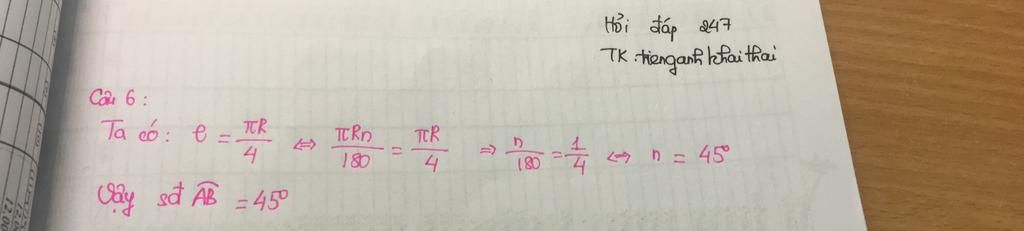 Hỏi đáp 247
TK: tienganhkhaithai
Câu 6:
Ta có: l = πR/4 ⇔ πRn/180 = πR/4 ⇒ n/180 = 1/4 ⇔ n = 45°
Vậy sđ AB = 45°